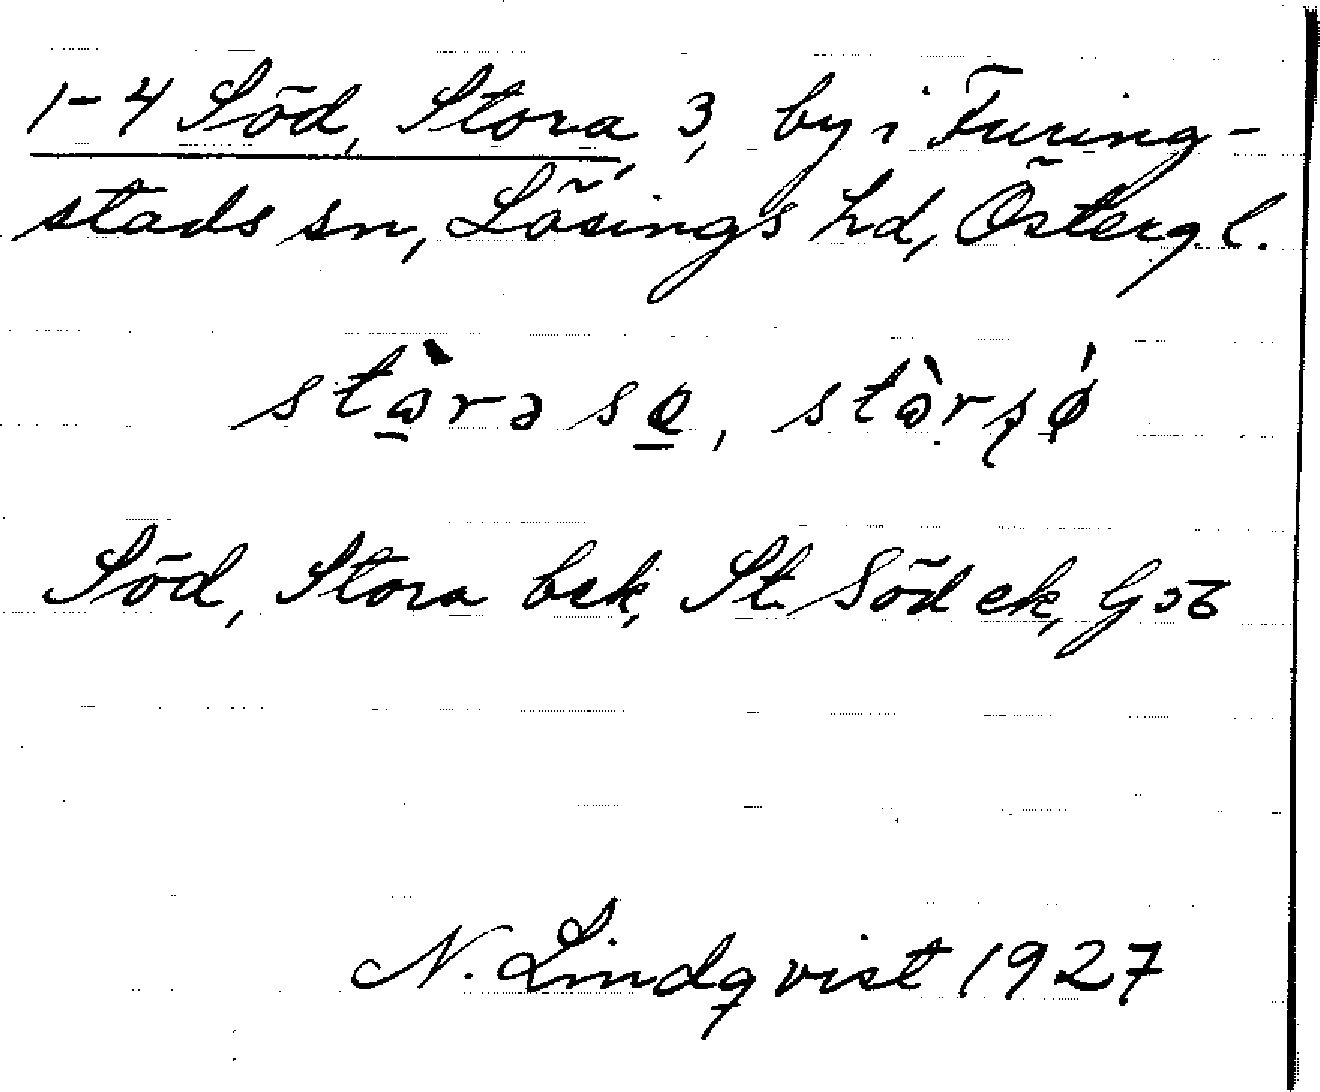 1-4 Söd, Stora, 3, by i Furing-
stads sn, Lösings hd, Östergl.
stɷ̀rə sø, stɷ̀rsǿ
Söd, Stora bsk, St. Söd ek,
N. Lindqvist 1927